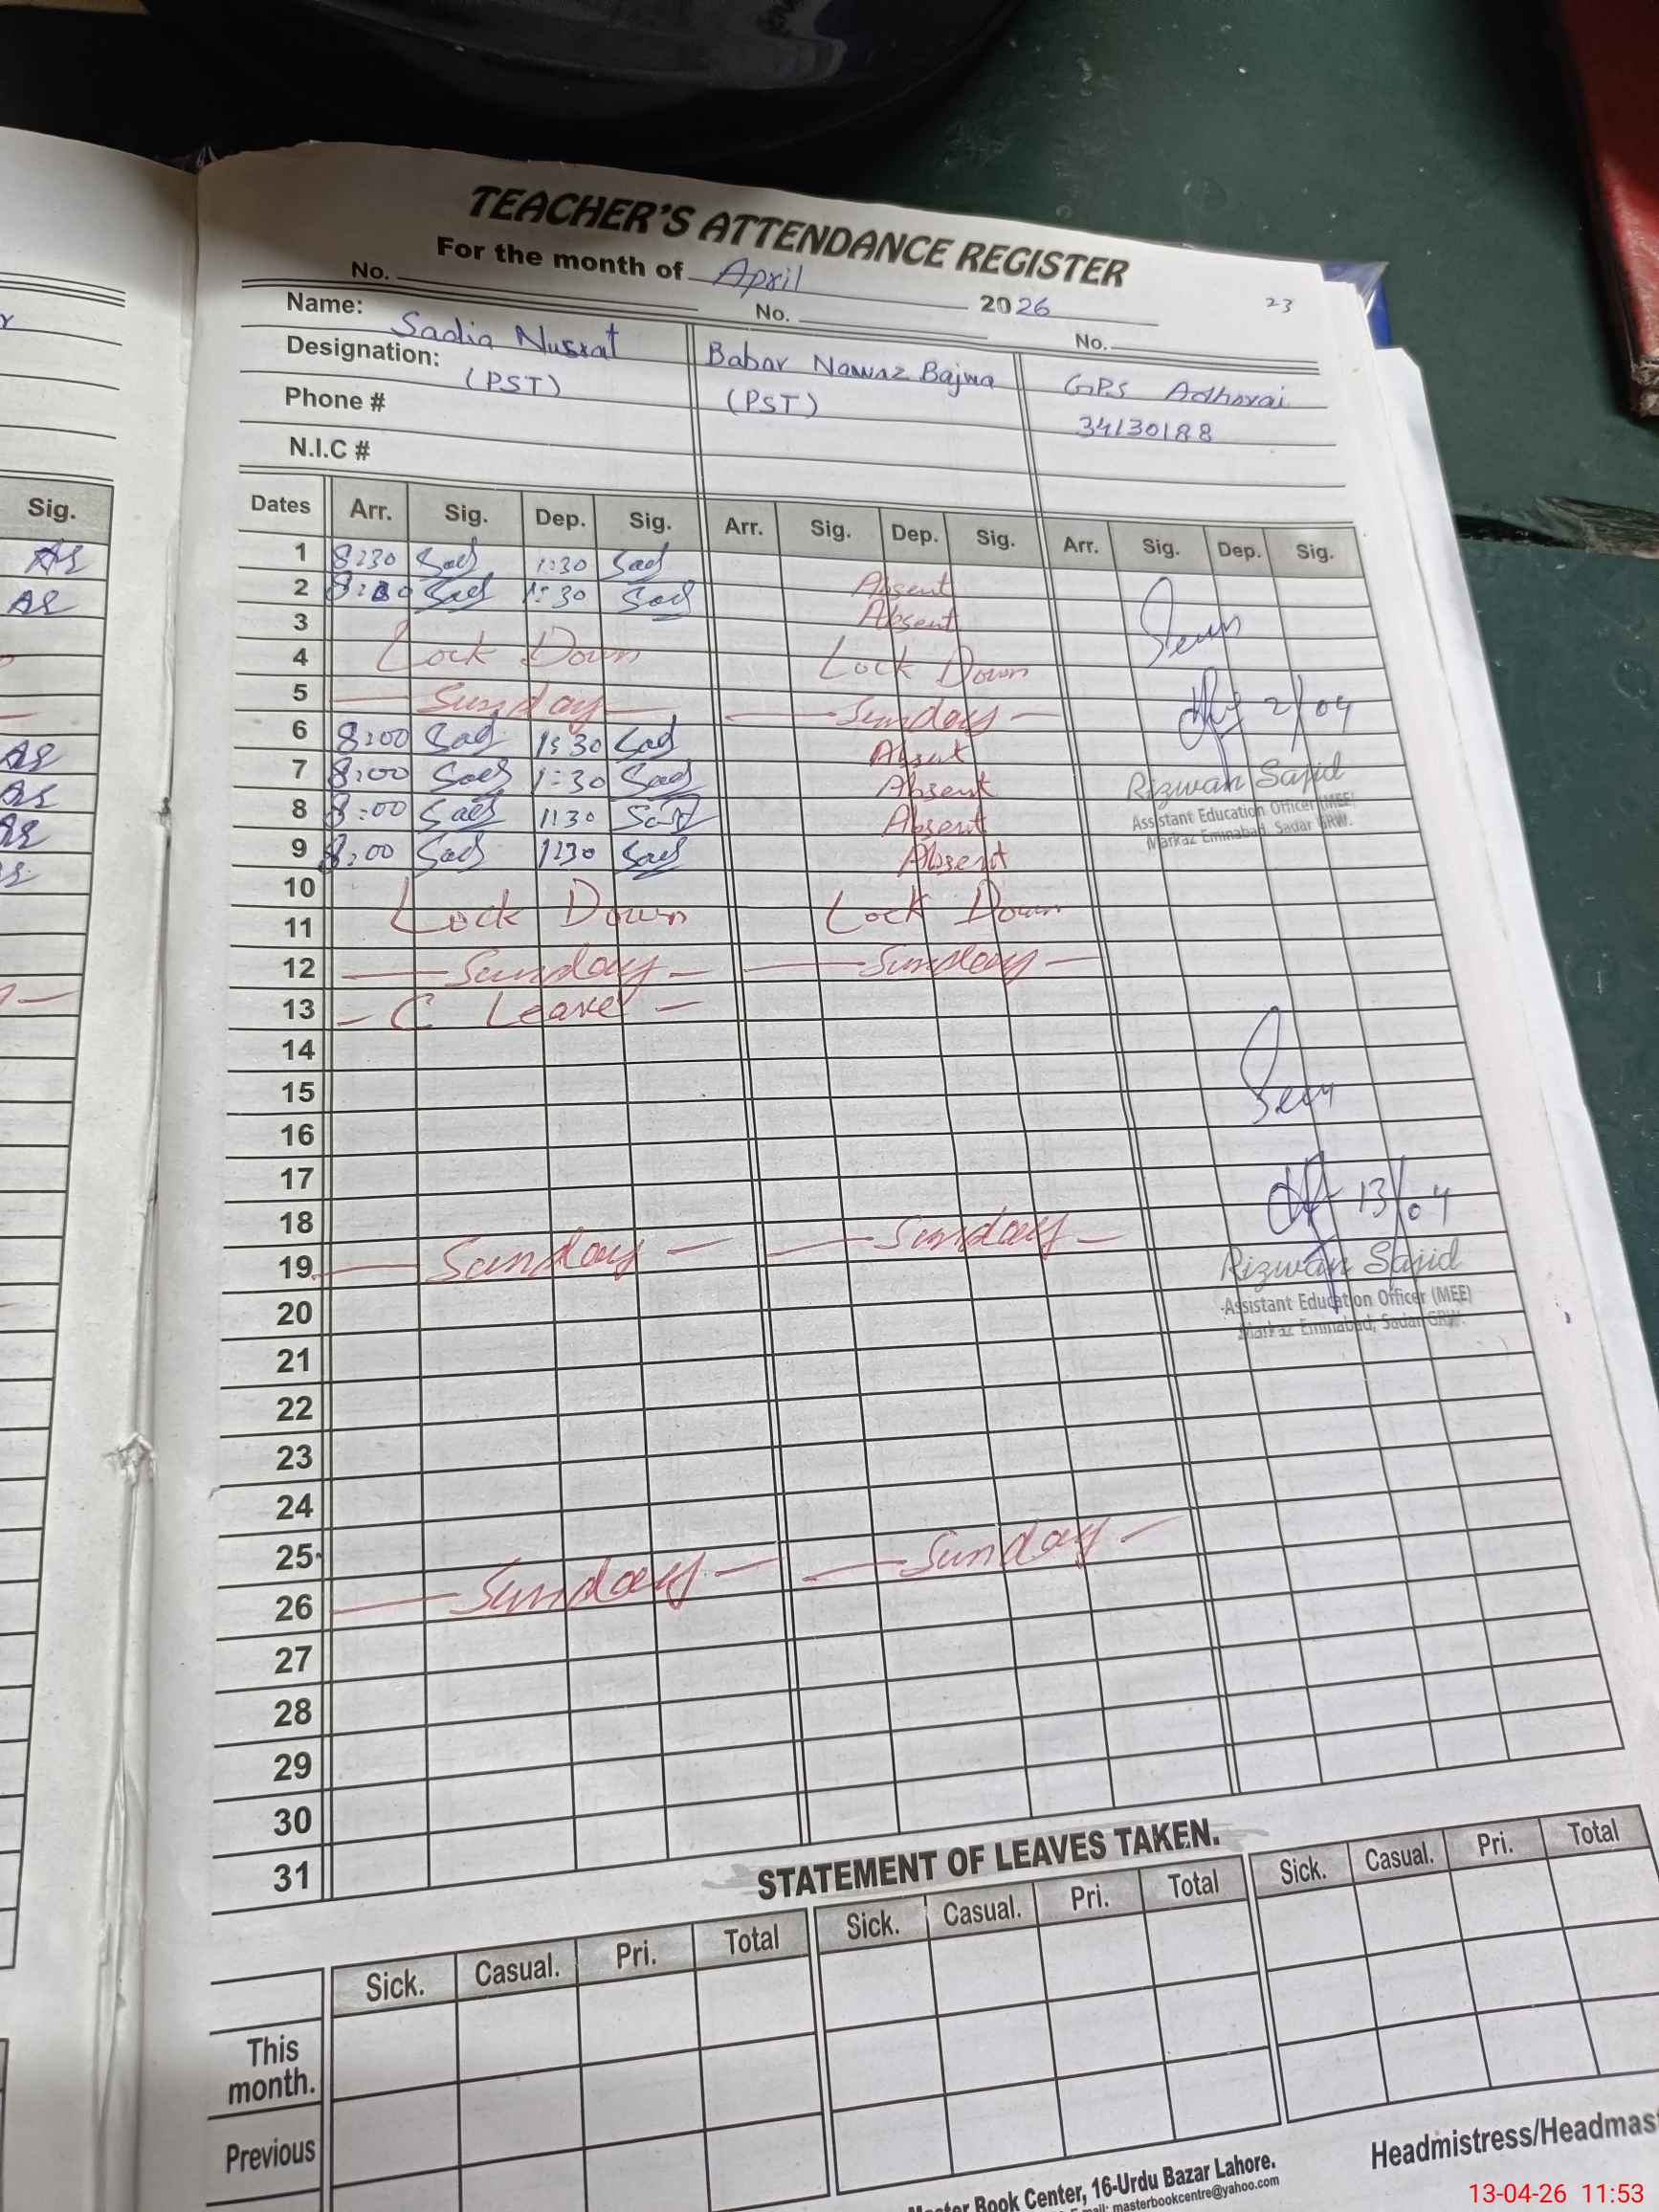 TEACHER'S ATTENDANCE REGISTER
For the month of April 2026 23
No. No. No.
Name: Sadia Nusrat Babar Nawaz Bajwa GPS Adhorai
Designation: (PST) (PST) 34130188
Phone #
N.I.C #
Sig.
Dates Arr. Sig. Dep. Sig. Arr. Sig. Dep. Sig. Arr. Sig. Dep. Sig.
1 8:30 Sad 1:30 Sad Absent
2 Sad 1:30 Sad Absent
3
4 Lock Down Lock Down
5 Sunday Sunday 2/04
6 8:00 Sad 1:30 Sad Absent
7 8:00 Sad 1:30 Sad Absent Rizwan Sajid
8 8:00 Sad 1:30 Sad Absent Assistant Education Officer (MEE)
9 8:00 Sad 1:30 Sad Absent Markaz Eminabad, Sadar GRW.
10
11 Lock Down Lock Down
12 Sunday Sunday
13 - C Leave -
14
15
16
17
18 13/04
19 Sunday Sunday Rizwan Sajid
20 Assistant Education Officer (MEE)
21 Markaz Eminabad, Sadar GRW.
22
23
24
25
26 Sunday Sunday
27
28
29
30
31
STATEMENT OF LEAVES TAKEN.
Sick. Casual. Pri. Total Sick. Casual. Pri. Total Sick. Casual. Pri. Total
This month.
Previous
Headmistress/Headmast
Book Center, 16-Urdu Bazar Lahore.
masterbookcentre@yahoo.com
13-04-26 11:53